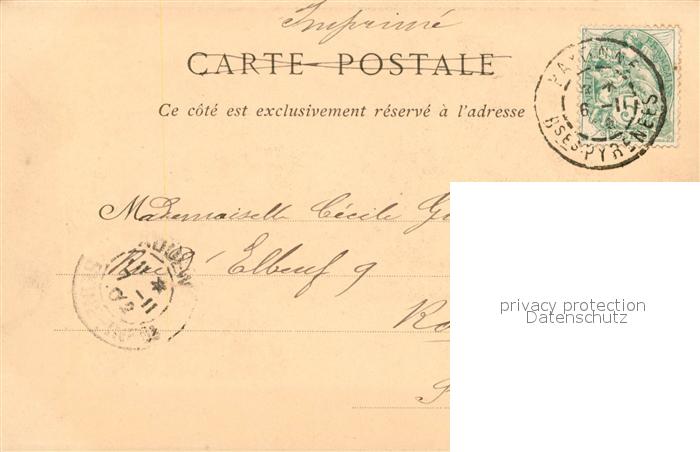 Imprimé
CARTE POSTALE
Ce côté est exclusivement réservé à l'adresse
BAYONNE
BSES PYRENEES
Mademoiselle Cécile
Rue d'Elbeuf 9
privacy protection
Datenschutz